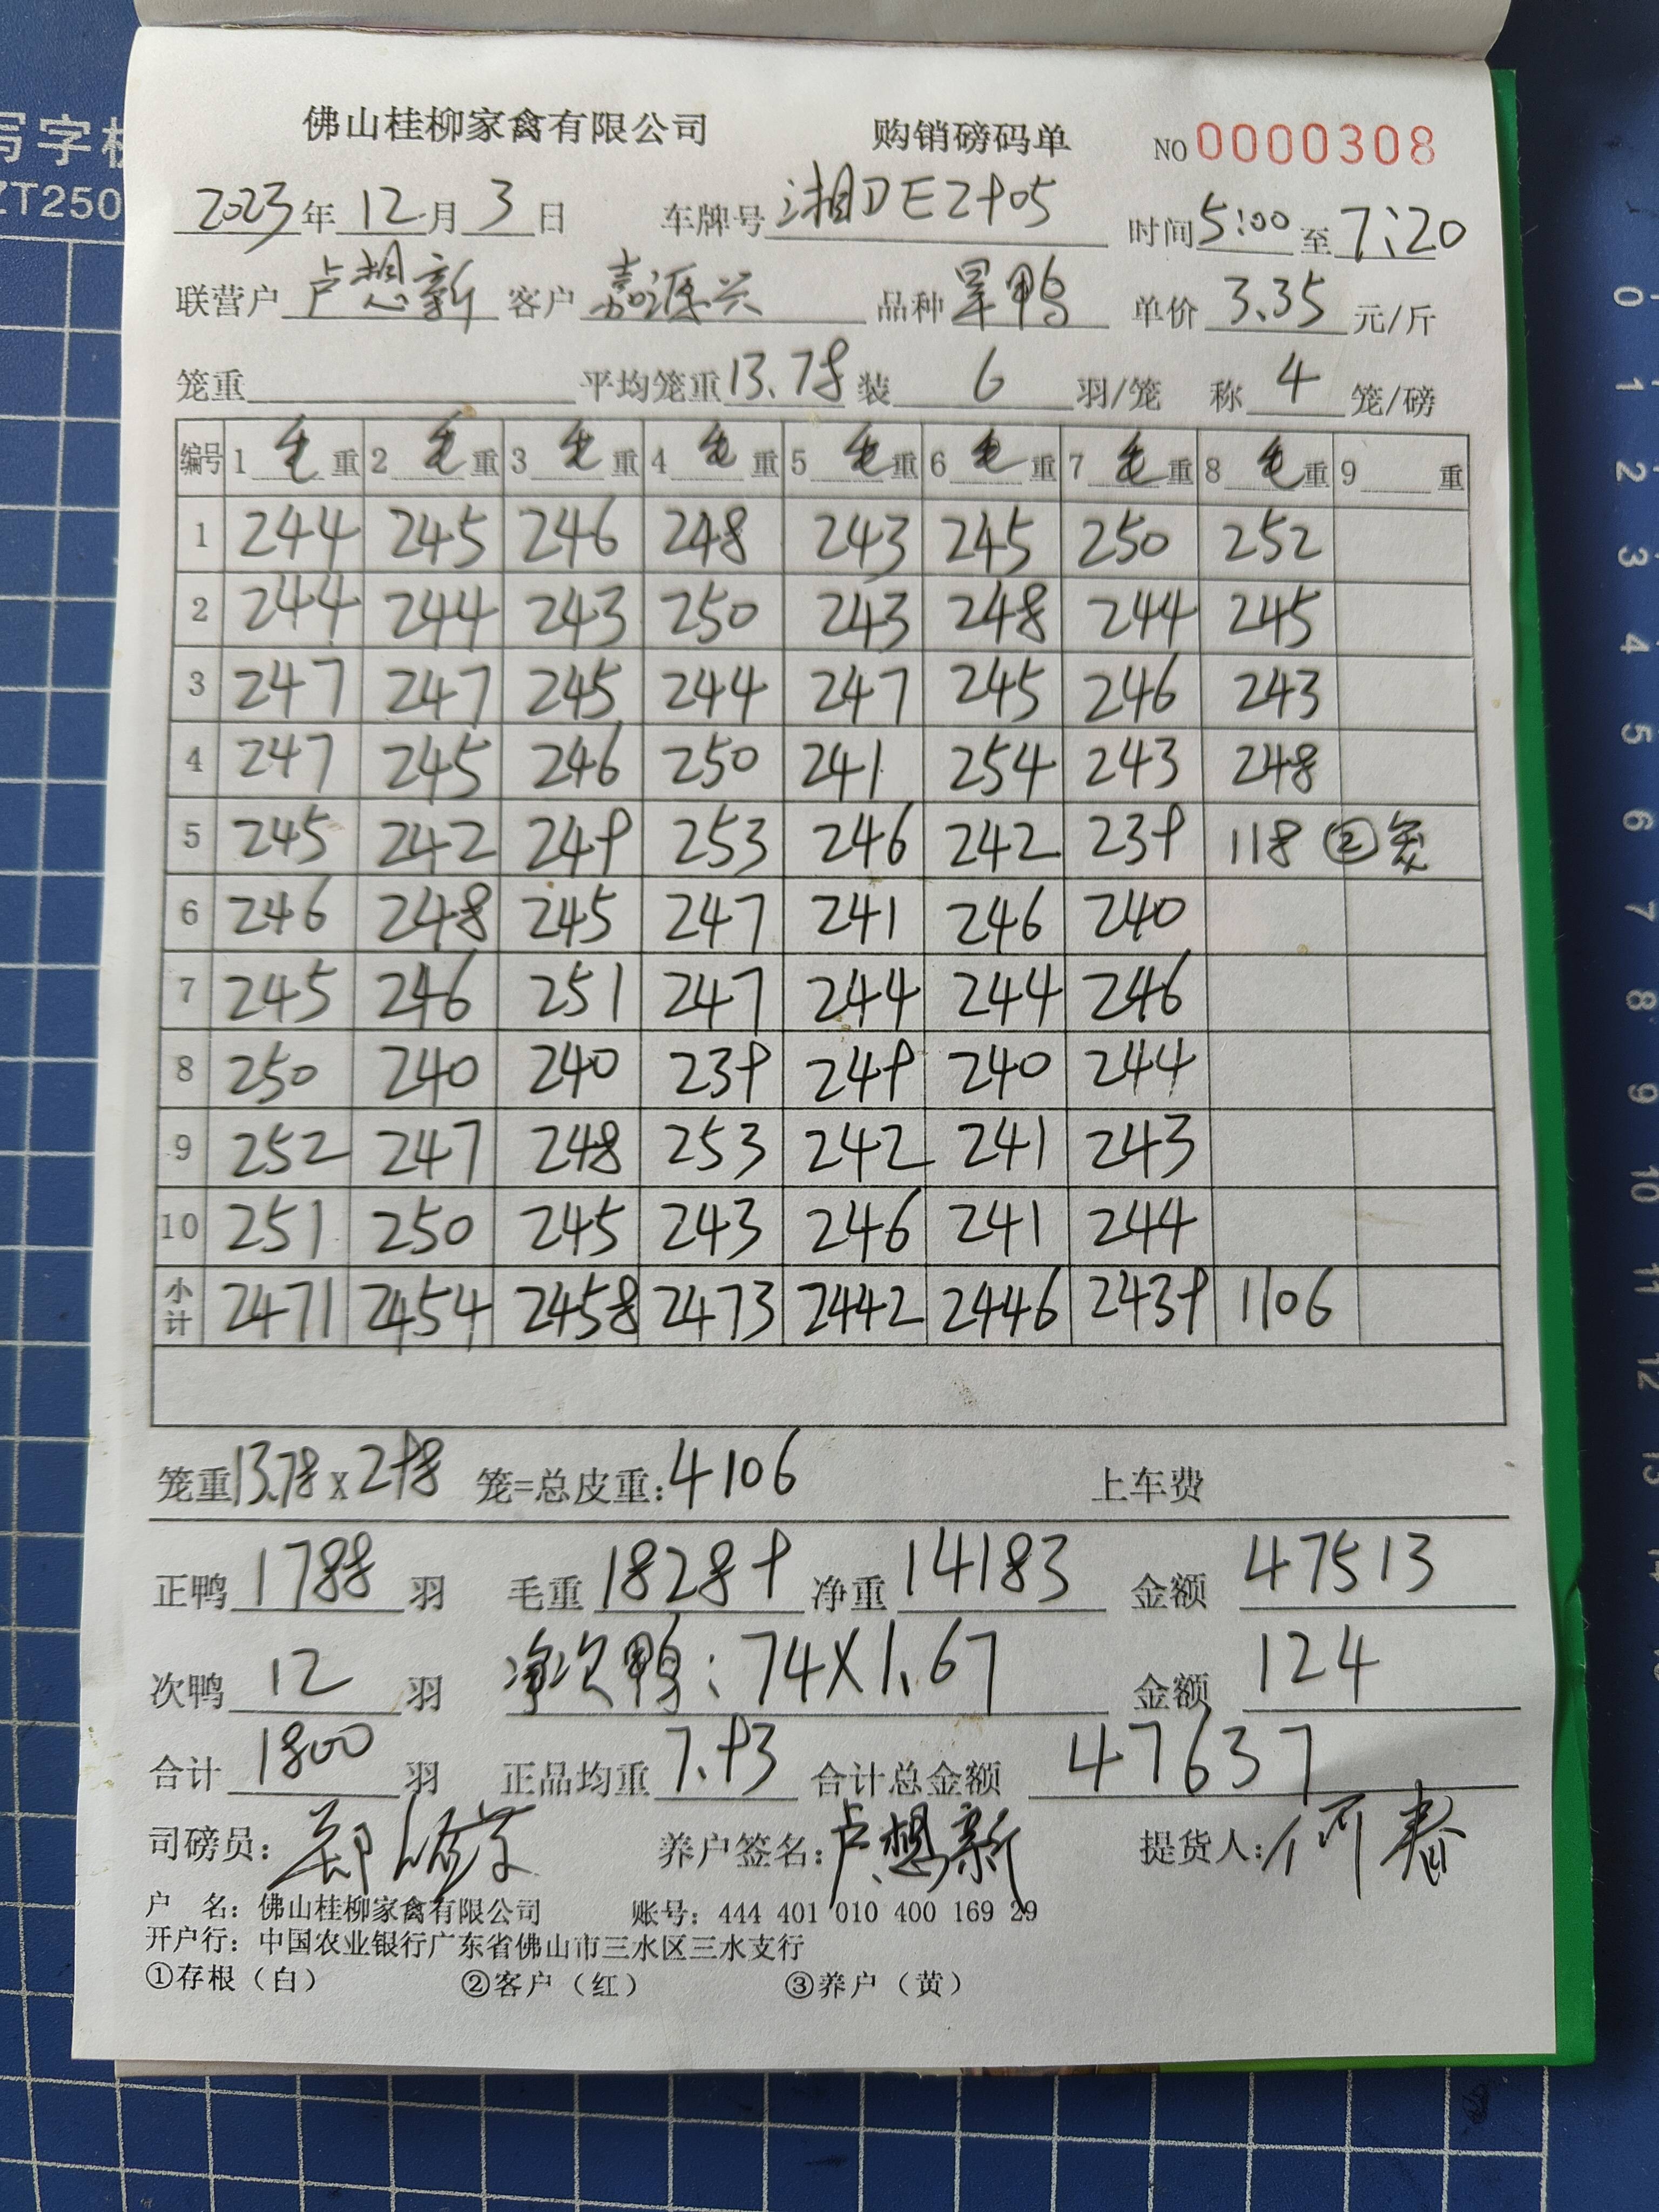 写字板
ZT250
佛山桂柳家禽有限公司 购销磅码单 NO 0000308
2023年12月3日 车牌号 湘DE2905 时间5:00至7:20
联营户 卢想新 客户 嘉源兴 品种 旱鸭 单价 3.35 元/斤
笼重 平均笼重13.78 装 6 羽/笼 称 4 笼/磅
编号 1 毛 重 2 毛 重 3 毛 重 4 毛 重 5 毛 重 6 毛 重 7 毛 重 8 毛 重 9 重
1 244 245 246 248 243 245 250 252
2 244 244 243 250 243 248 244 245
3 247 247 245 244 247 245 246 243
4 247 245 246 250 241 254 243 248
5 245 242 249 253 246 242 239 118 ②笼
6 246 248 245 247 241 246 240
7 245 246 251 247 244 244 246
8 250 240 240 239 249 240 244
9 252 247 248 253 242 241 243
10 251 250 245 243 246 241 244
小计 2471 2454 2458 2473 2442 2446 2439 1106
笼重13.78 x 298 笼=总皮重:4106 上车费
正鸭 1788 羽 毛重 18289 净重 14183 金额 47513
次鸭 12 羽 净次鸭:74X1.67 金额 124
合计 1800 羽 正品均重 7.93 合计总金额 47637
司磅员: 养户签名:卢想新 提货人:何春
户 名:佛山桂柳家禽有限公司 账号:444 401 010 400 169 29
开户行:中国农业银行广东省佛山市三水区三水支行
①存根(白) ②客户(红) ③养户(黄)
0
1
2
3
4
5
6
7
8
9
10
11
12
13
14